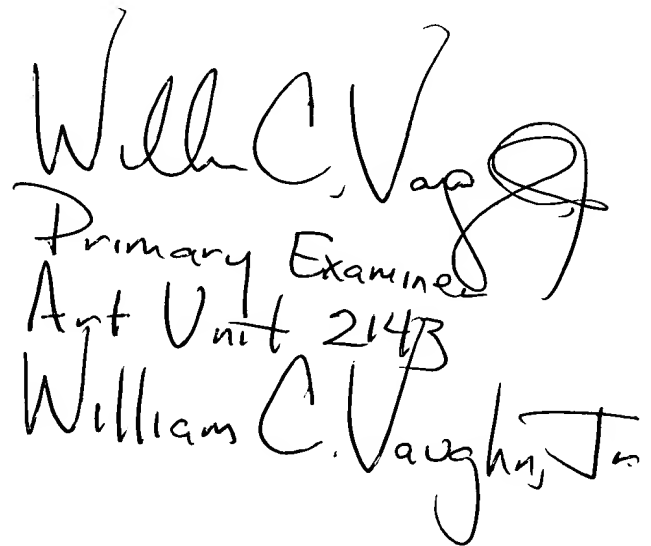 William C. Vaughn, Jr.
Primary Examiner
Art Unit 2143
William C. Vaughn, Jr.